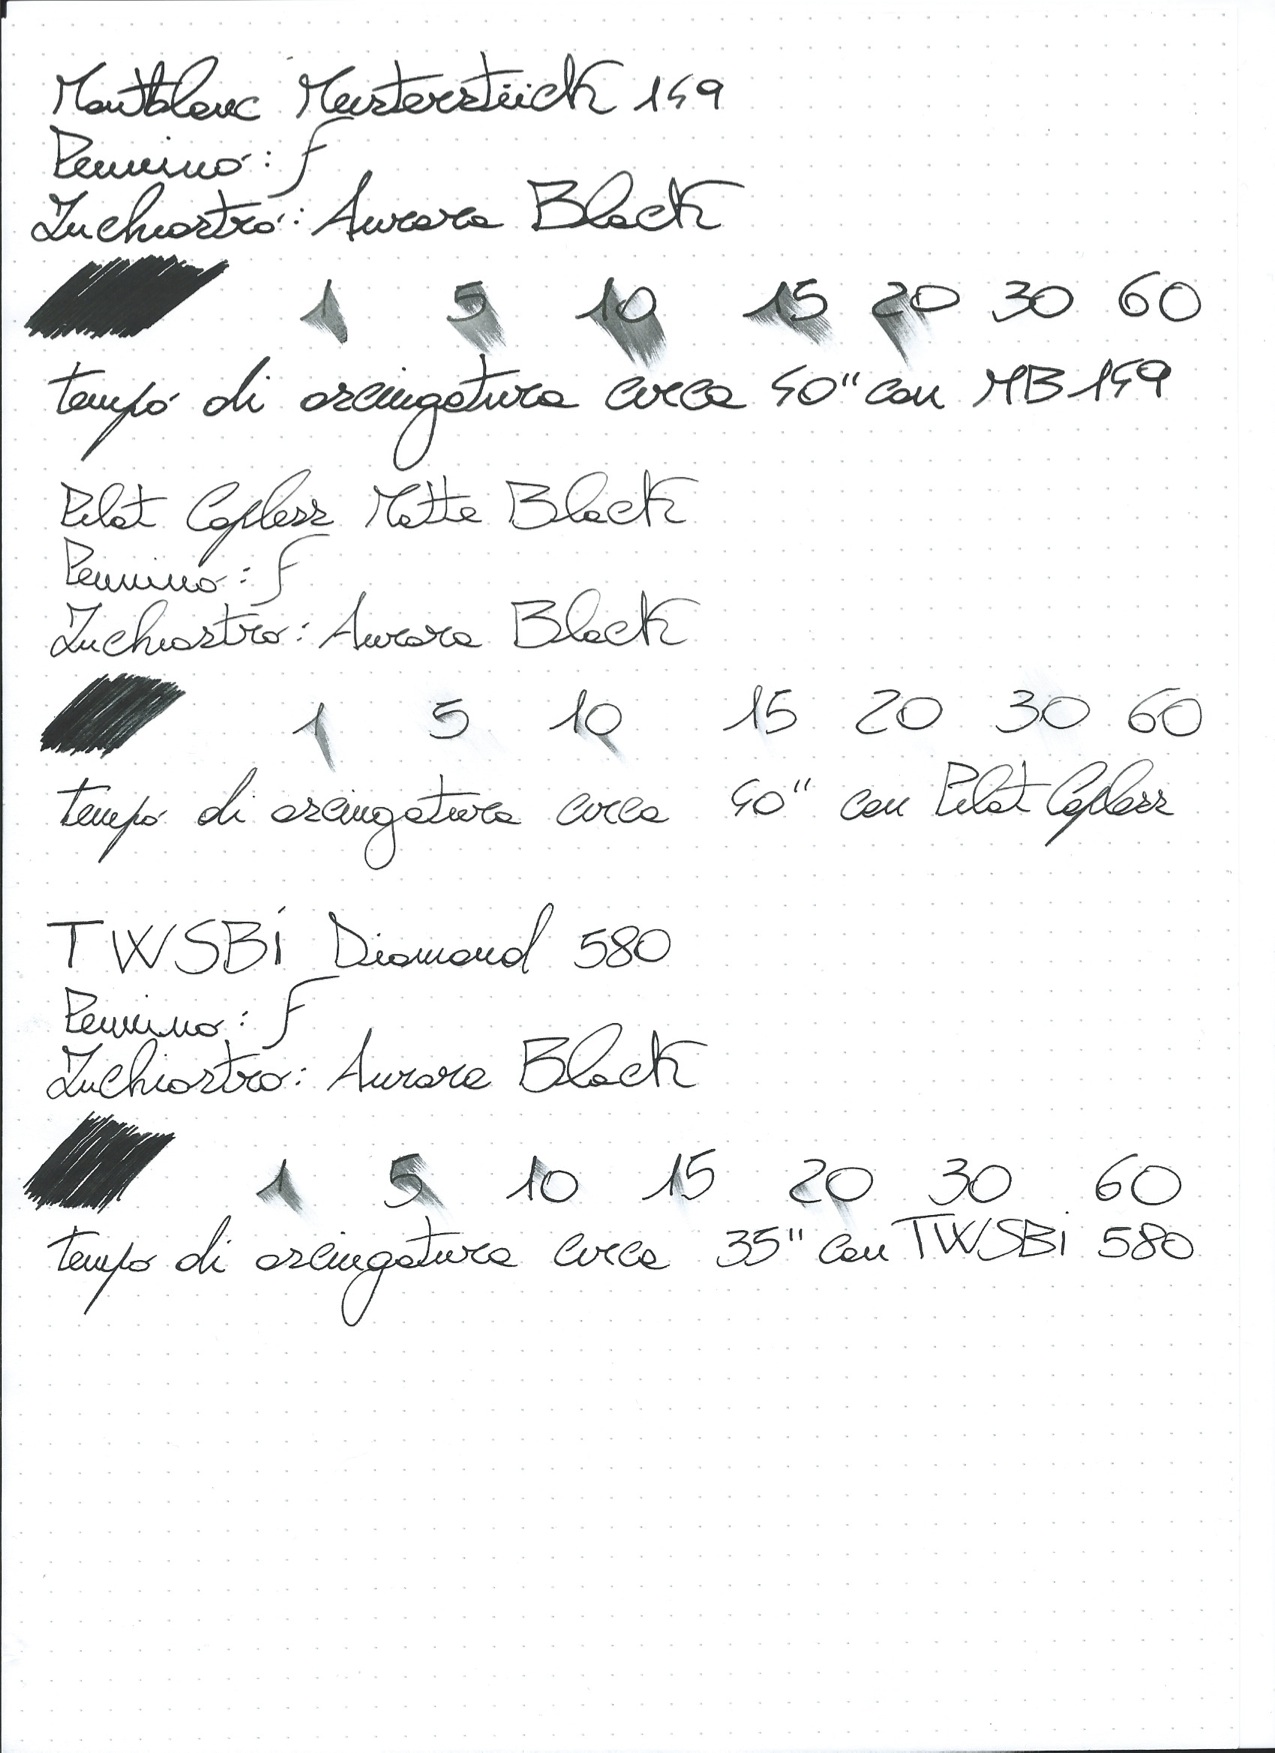 Montblanc Meisterstück 149
Pennino: F
Inchiostro: Aurora Black
1 5 10 15 20 30 60
tempo di asciugatura circa 40" con MB 149
Pilot Capless Matte Black
Pennino: F
Inchiostro: Aurora Black
1 5 10 15 20 30 60
tempo di asciugatura circa 40" con Pilot Capless
TWSBi Diamond 580
Pennino: F
Inchiostro: Aurora Black
1 5 10 15 20 30 60
tempo di asciugatura circa 35" con TWSBi 580